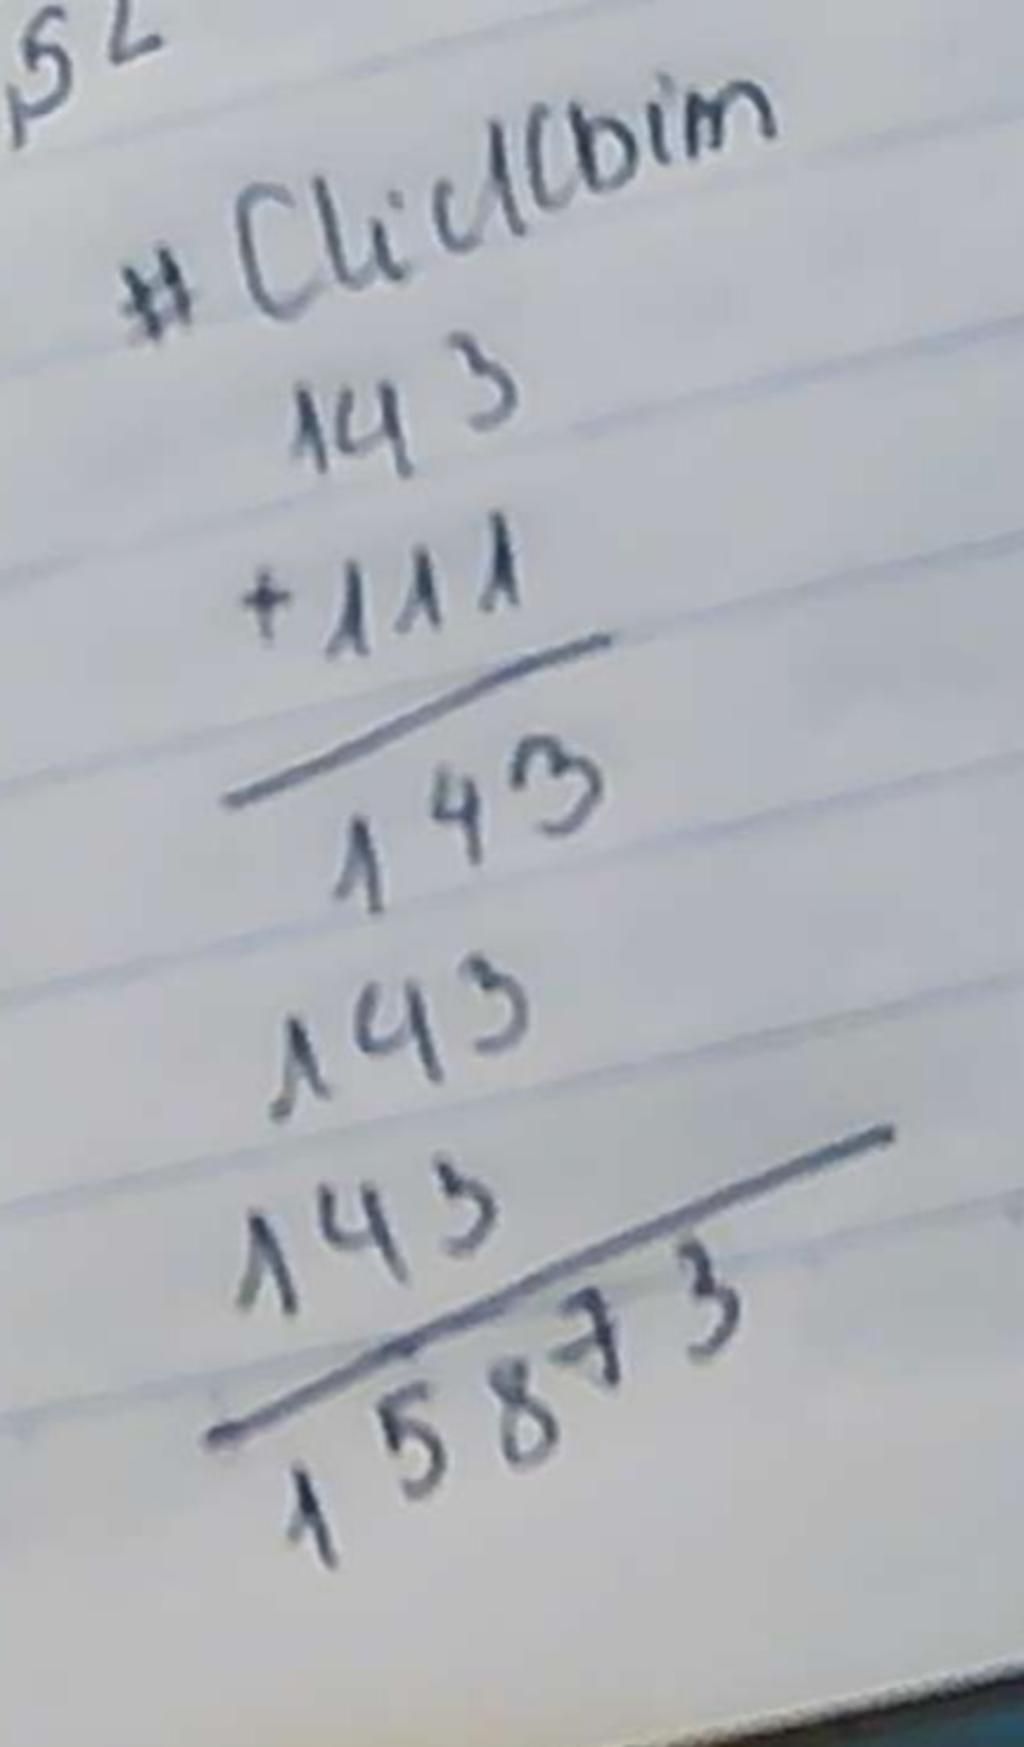 52
143
+111
143
143
143
15873